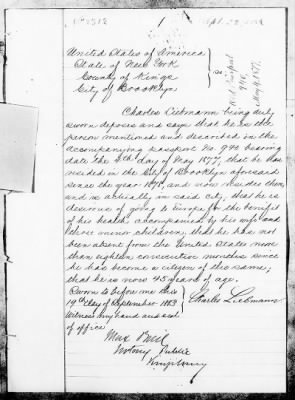 United States of America
State of New York
County of Kings
City of Brooklyn
ss:
Old Passport
940,
May 8, 1877.
Charles Liebmann being duly
sworn deposes and says that he is the
person mentioned and described in the
accompanying passport No. 940 bearing
date the 8th day of May 1877, that he has
resided in the City of Brooklyn aforesaid
since the year 1871, and now resides then,
and is actually in said city, that he is
desirous of going to Europe for the benefit
of his health accompanied by his wife and
three minor children; that he has not
been absent from the United States more
than eighteen consecutive months since
he has become a citizen of the same;
that he is now 45 years of age.
Sworn to before me this
19th day of September 1883
Witness my hand and seal
of office
Charles Liebmann
Max
Notary Public
Kings County